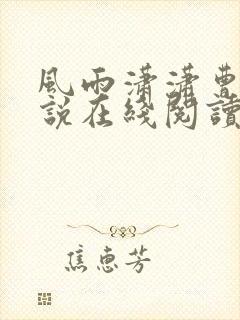 風雨瀟瀟曹
說在綫閱讀
焦惠芳